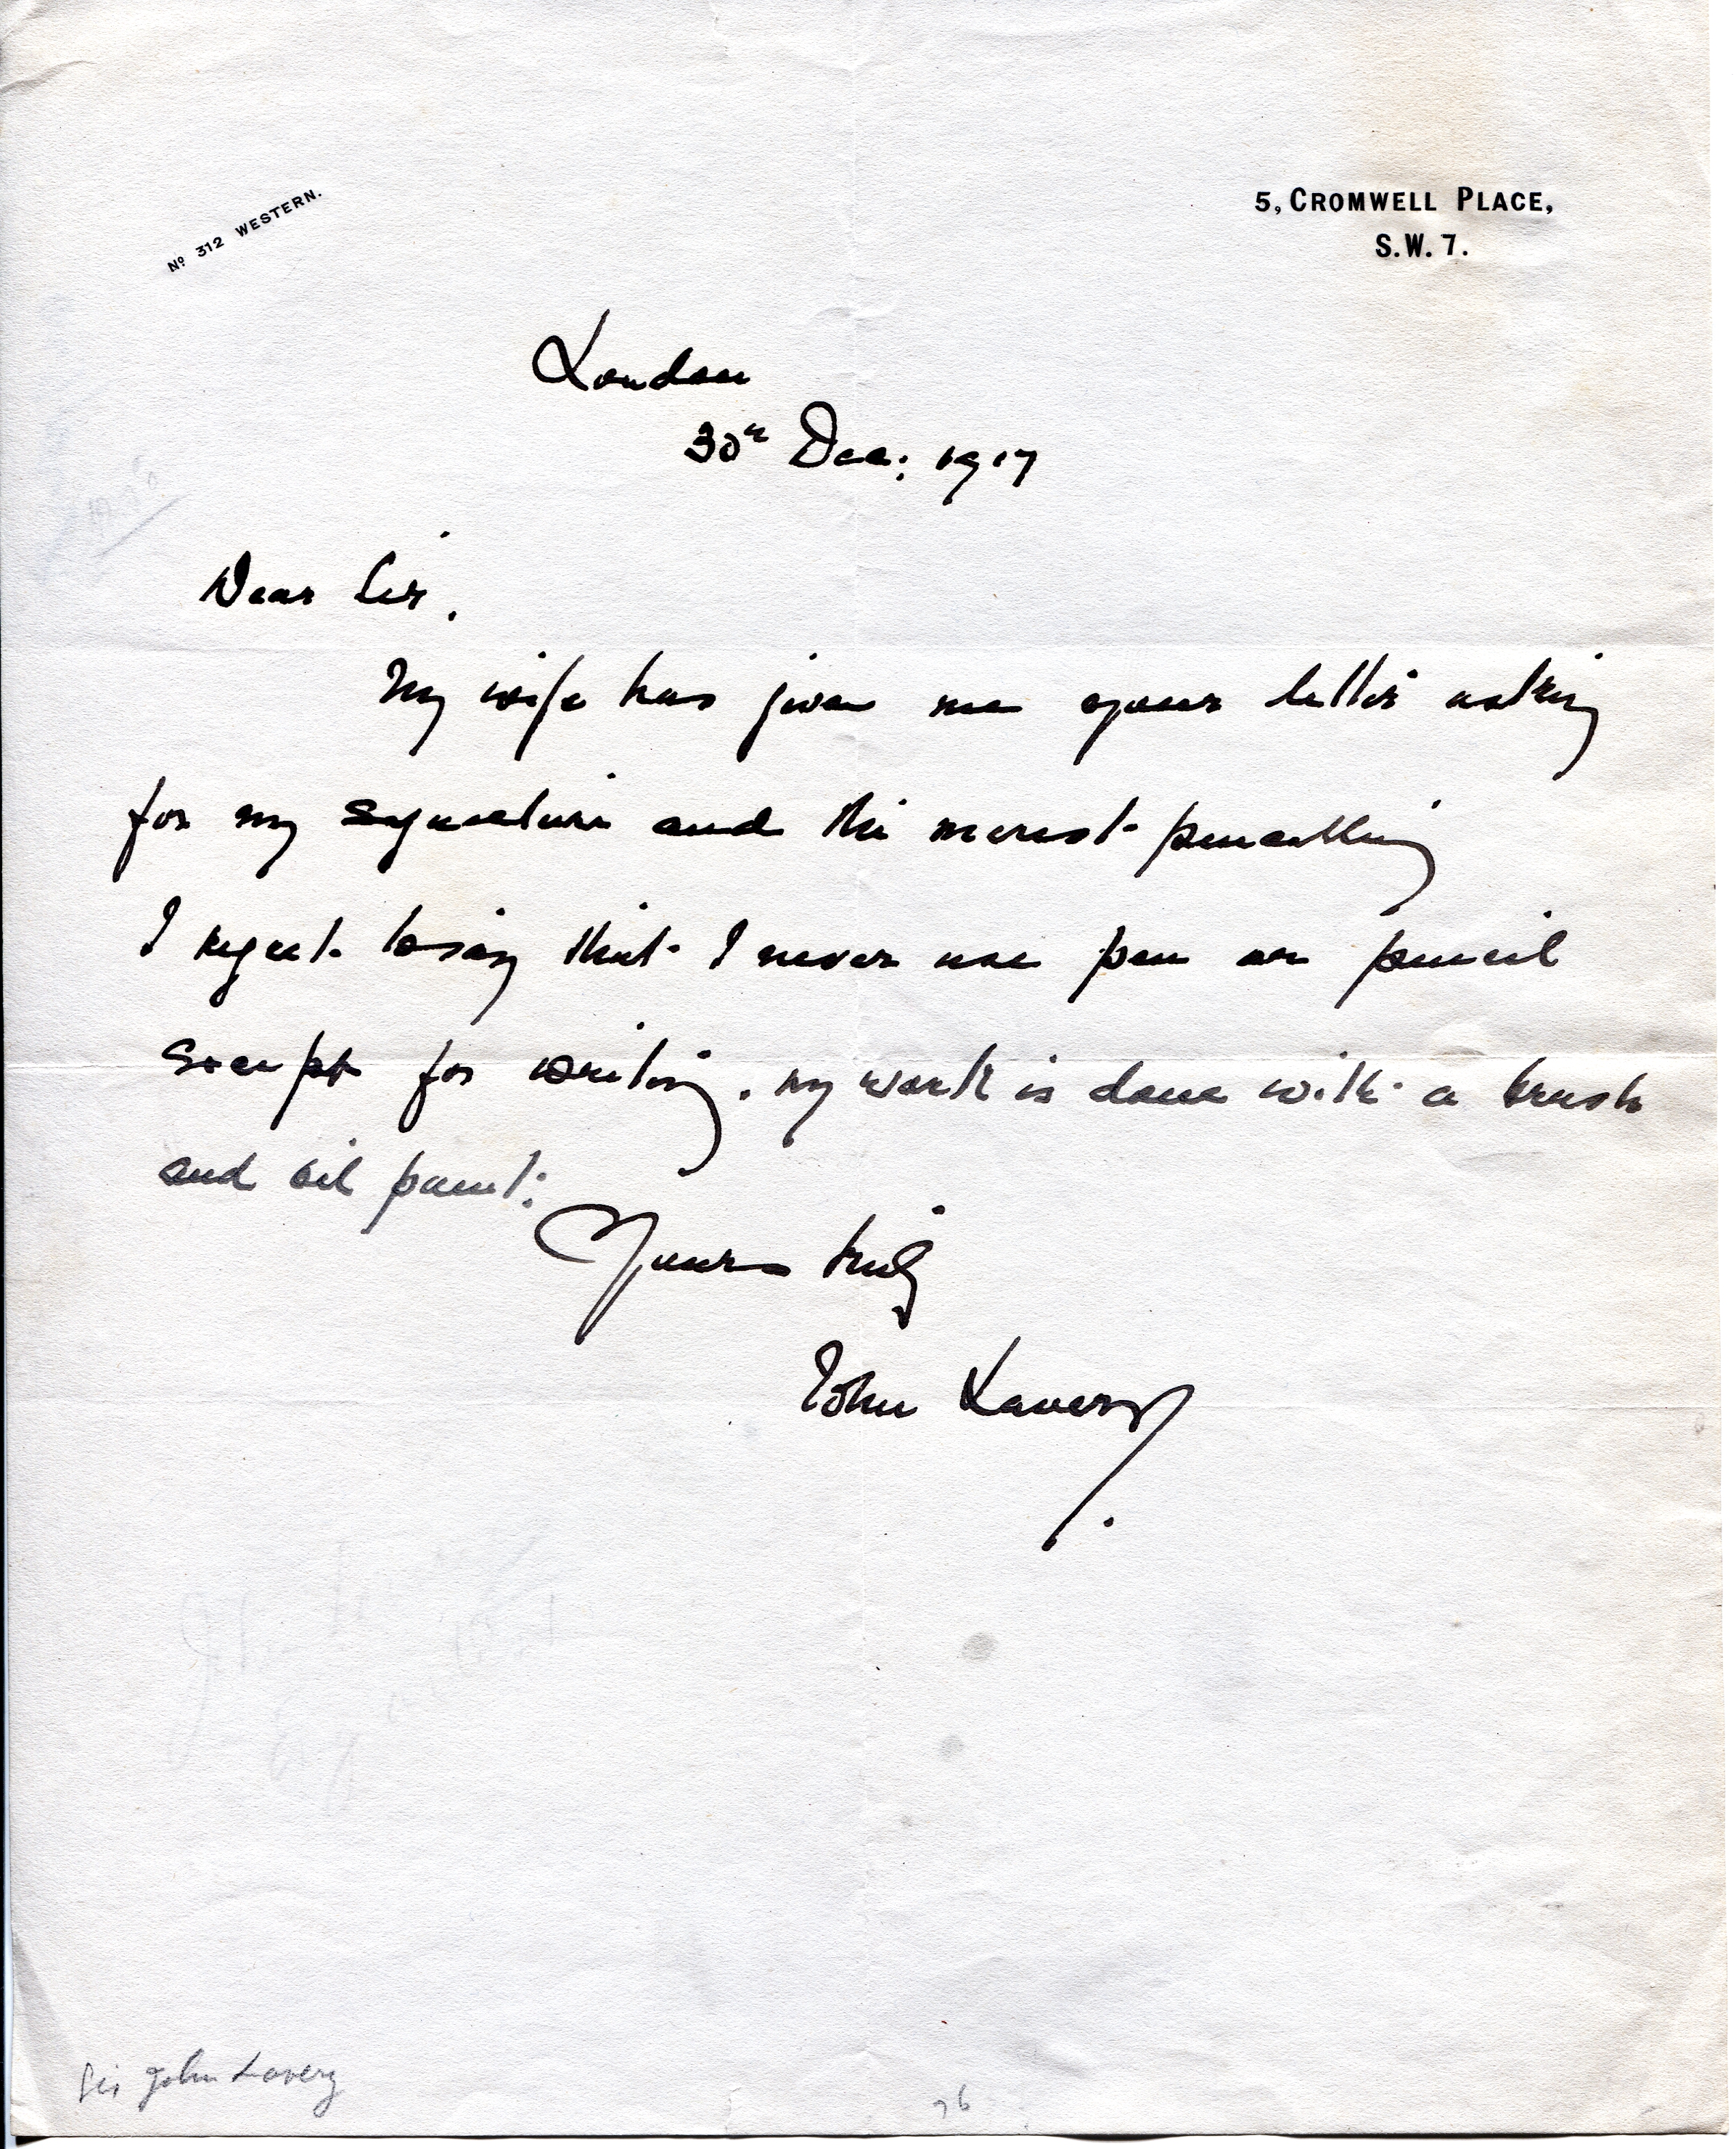 Nº 312 WESTERN.
5, CROMWELL PLACE,
S.W. 7.
London
30th Dec: 1917
Dear Sir.
My wife has given me your letter asking
for my signature and the merest pencilling
I regret to say that I never use pen or pencil
except for writing. my work is done with a brush
and oil paint:
Yours truly
John Lavery.
Sir John Lavery
76